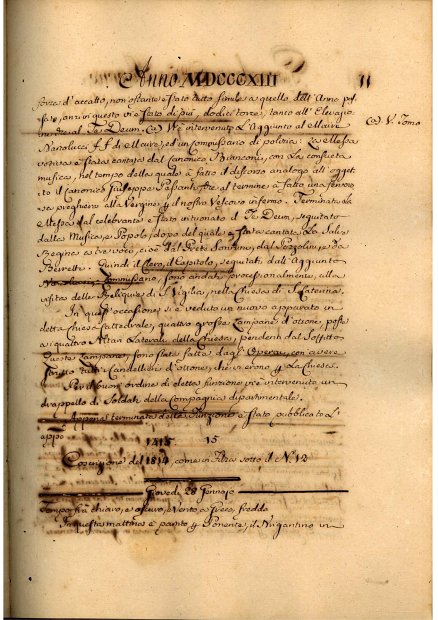 Anno MDCCCXIII 11
forze d'accatto, non ostante è stato tutto simile a quello dell'Anno pas
sato, anzi in questo vi è stato di più, dodici torce, tanto all'Elevazio
Te Deum. (a) Vi è intervenuto l'Aggiunto al Maire
(a) V. Tomo
Nanolucci ff. di Maire, ed un Commissario di polizia: La Messa
votiva è stata cantata dal Canonico Bianconi, con la consueta
musica, nel tempo della quale à fatto il discorso analogo all'ogget
to il Canonico Giuseppe che al termine à fatto una fervoro
sa preghiera alla Vergine, pel nostro Vescovo infermo. Terminata la
Messa dal celebrante è stato intuonato il Te Deum, seguitato
dalla Musica, e Popolo, dopo del quale è stata cantata la Salve
Regina a tre voci, cioè dal Prete dal Pozzolini, e da
Burette. Quindi il Clero, il Capitolo, seguitati dall'Aggiunto
Commissario, sono andati processionalmente, alla
visita delle Reliquie di S. nella Chiesa di S. Caterina.
In quest'occasione si è veduto un nuovo apparato in
detta chiesa Cattedrale, quattro grosse Lampane d'ottone, poste
ai quattro Altari Laterali della Chiesa, pendenti dal Soffitto
Queste Lampane, sono state fatte dagl'Operai, con avere
tutti i Candellieri d'ottone, che v'erono p. la Chiesa.
Per il buon ordine di detta funzione v'è intervenuto un
drappello di Soldati della Compagnia dipartimentale.
Appena terminata detta funzione è stato pubblicato l'
appo 1415 15
Coscrizione del 1814, come in Filza sotto il N. 12
Giovedì 28 Gennajo
Tempo frà chiaro, e oscuro, e Vento, e freddo
In questa mattina è partito p. Ponente, il Brigantino in